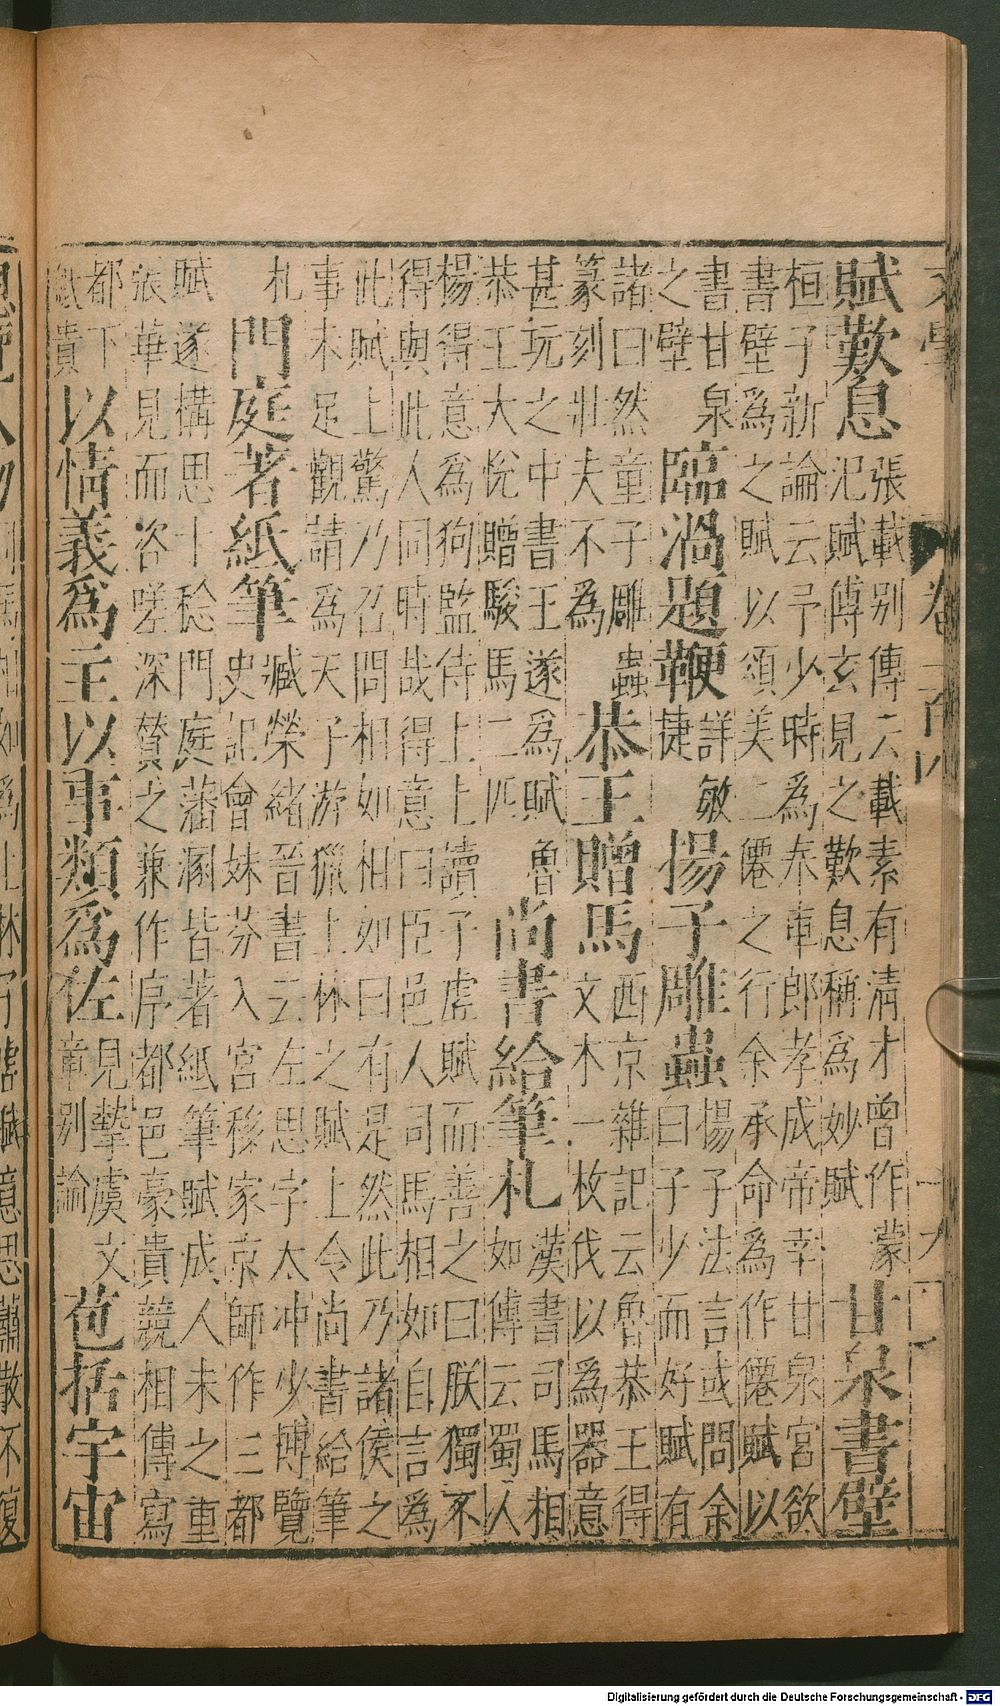 文學 卷一百四
賦歎息
張載別傳云載素有清才曾作蒙
汜賦傅玄見之歎息稱為妙賦
甘泉書壁
桓子新論云予少時為奉車郎孝成帝幸甘泉宮欲
書壁為之賦以頌美二僊之行余承命為作僊賦以
書甘泉
之壁
臨渦題鞭
詳敏
捷
揚子雕蟲
揚子法言或問余
曰子少而好賦有
諸曰然童子雕蟲
篆刻壯夫不為
恭王贈馬
西京雜記云魯恭王得
文木一枚伐以為器意
甚玩之中書王遂為賦魯
恭王大悅贈駿馬二匹
尚書給筆札
漢書司馬相
如傳云蜀人
楊得意為狗監侍上上讀子虛賦而善之曰朕獨不
得與此人同時哉得意曰臣邑人司馬相如自言為
此賦上驚乃召問相如相如曰有是然此乃諸侯之
事未足觀請為天子游獵上林之賦上令尚書給筆
札
門庭著紙筆
臧榮緒晉書云左思字太冲少博覽
史記曾妹芬入宮移家京師作三都
賦遂構思十稔門庭藩溷皆著紙筆賦成人未之重
張華見而咨嗟深贊之兼作序都邑豪貴競相傳寫
都下
紙貴
以情義為主以事類為佐
見摯虞文
章別論
苞括宇宙
相如為上林子虛賦意思蕭散不復
Digitalisierung gefördert durch die Deutsche Forschungsgemeinschaft - DFG